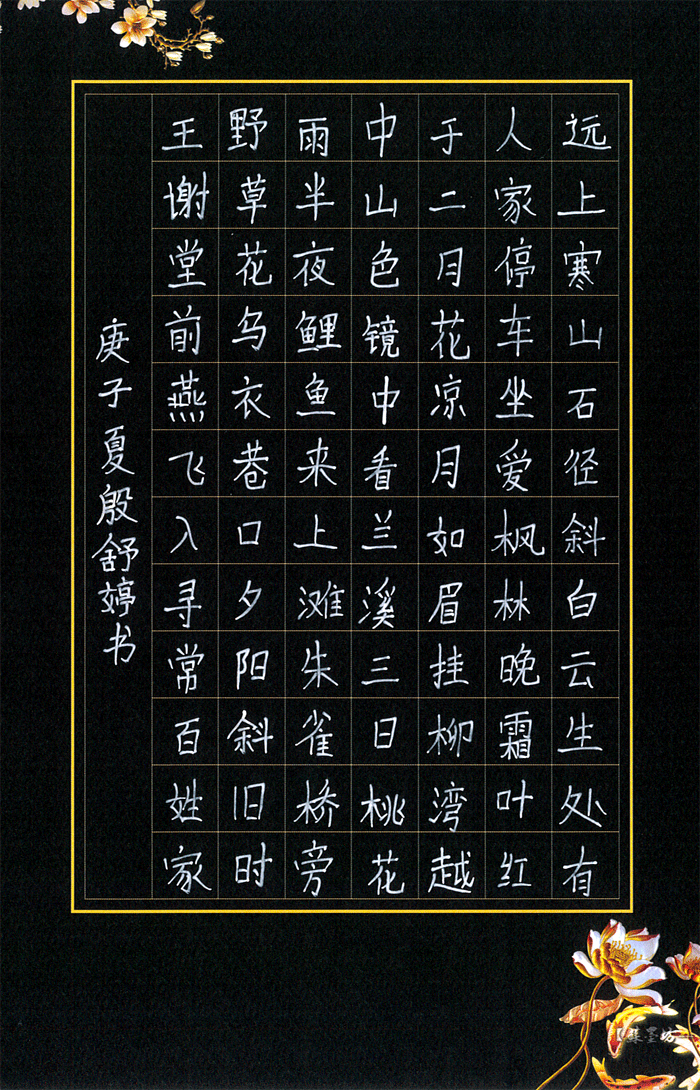 远上寒山石径斜白云生处有
人家停车坐爱枫林晚霜叶红
于二月花凉月如眉挂柳湾越
中山色镜中看兰溪三日桃花
雨半夜鲤鱼来上滩朱雀桥旁
野草花乌衣巷口夕阳斜旧时
王谢堂前燕飞入寻常百姓家
庚子夏殷舒婷书